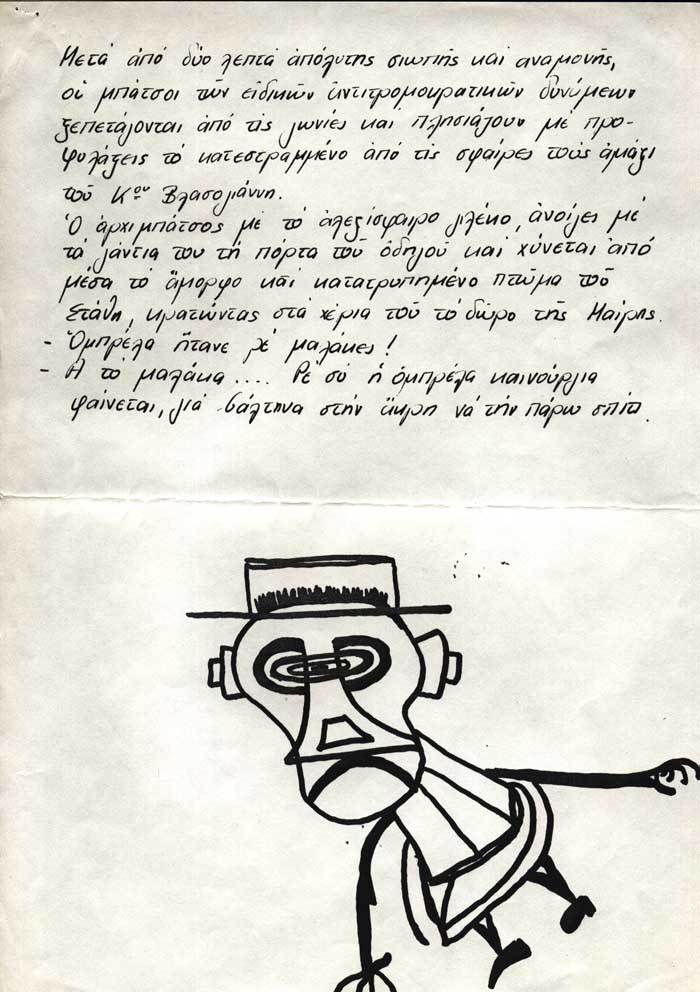 Μετά από δύο λεπτά απόλυτης σιωπής και αναμονής,
οι μπάτσοι τῶν εἰδικῶν ἀντιτρομοκρατικῶν δυνάμεων
ξεπετάγονται ἀπό τίς γωνίες καί πλησιάζουν μέ προ-
φυλάξεις τό κατεστραμμένο ἀπό τίς σφαίρες τούς ἁμάξι
τοῦ Κου Βλασογιάννη.
Ὁ ἀρχιμπάτσος μέ τό ἀλεξίσφαιρο γιλέκο, ἀνοίγει μέ
τά γάντια του τή πόρτα τοῦ ὁδηγοῦ καί χύνεται ἀπό
μέσα τό ἄμορφο καί κατατρυπημένο πτῶμα τοῦ
Στάθη, κρατώντας στά χέρια τοῦ τό δῶρο τῆς Μαίρης.
- Ὀμπρέλα ἤτανε ρέ μαλάκες!
- Α τό μαλάκα.... Ρέ σύ ἡ ὀμπρέλα καινούργια
φαίνεται, γιά βάλτηνα στήν ἄκρη νά τήν πάρω σπίτι.